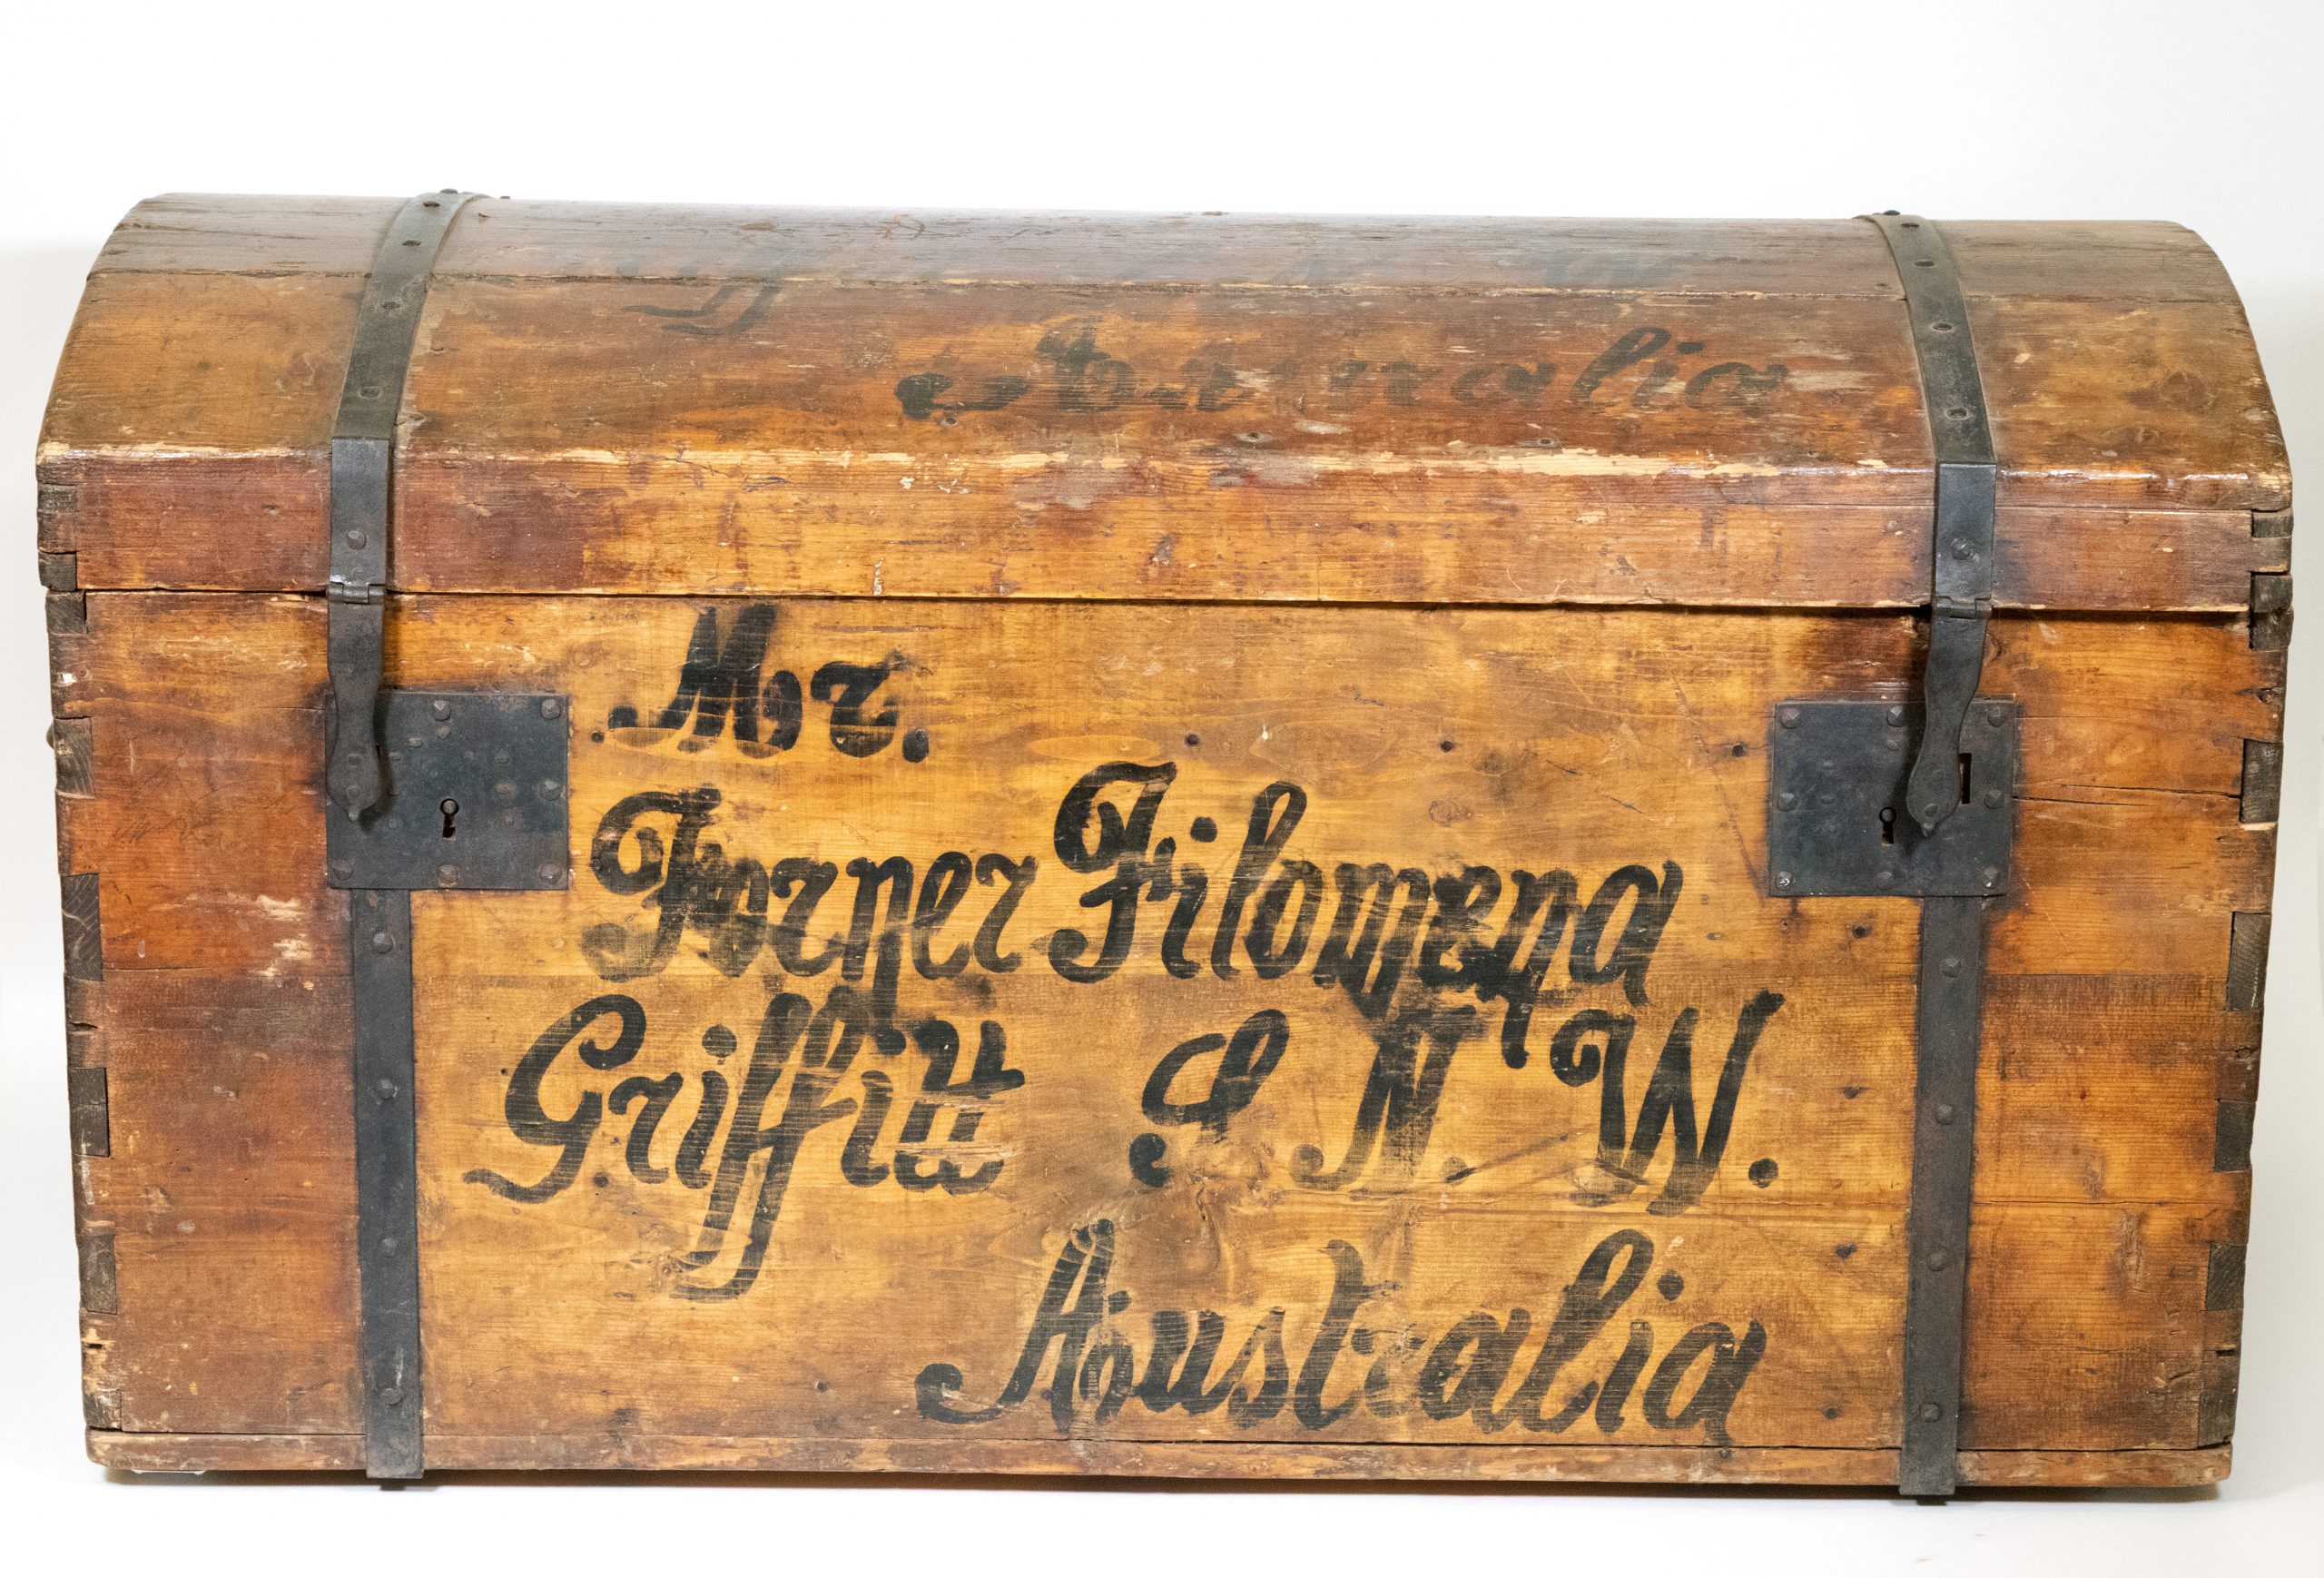 Australia
Mr.
Forner Filomena
Griffitt S. N. W.
Australia